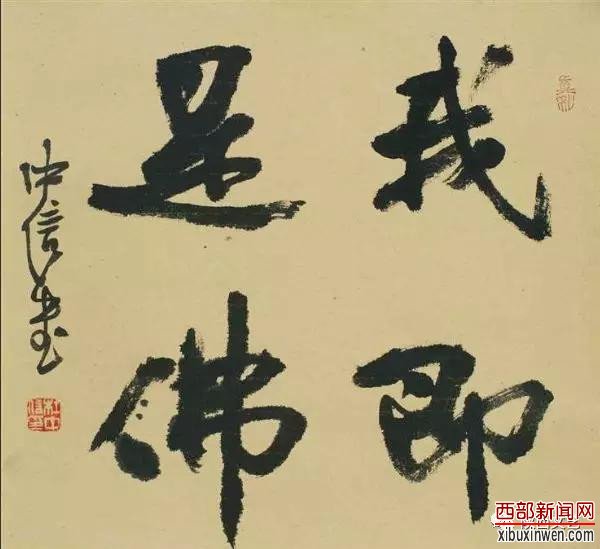 我即
是佛
中信書
杜中信印
西部新闻网
xibuxinwen.com